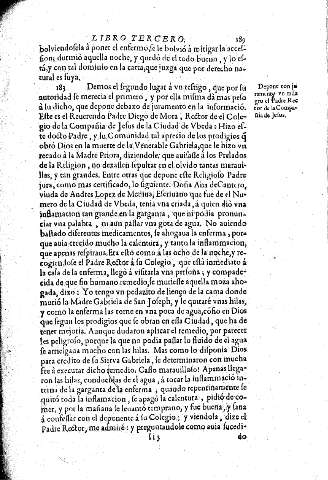 LIBRO TERCERO. 189
bolviendosela à ponèr el enfermo, se le bolviò à mitigar la acces-
sion, durmiò aquella noche, y quedò de el todo bueno, y lo es-
tà, y con tal dominio en la carta, que juzga que por derecho na-
tural es suya.
183 Demos el segundo lugar à vn testigo, que por su
autoridad se merecia el primero, y por ella misma dà mas peso
à su dicho, que depone debaxo de juramento en la informaciō.
Este es el Reverendo Padre Diego de Mora, Rector de el Cole-
gio de la Compañia de Jesus de la Ciudad de Vbeda: Hizo es-
te docto Padre, y su Comunidad tal aprecio de los prodigios q̄
obrò Dios en la muerte de la Venerable Gabriela, que le hizo vn
recado à la Madre Priora, diziendole: que avisasse à los Prelados
de la Religion, no dexassen sepultar en el olvido tantas maravi-
llas, y tan grandes. Entre otras que depone este Religioso Padre
jura, como mas certificado, lo siguiente. Doña Ana de Cantero,
viuda de Andres Lopez de Molina, Escrivano que fue de el Nu-
mero de la Ciudad de Vbeda, tenia vna criada, à quien diò vna
inflamacion tan grande en la garganta, que ni podia pronun-
ciar vna palabra, ni aun passar vna gota de agua. No aviendo
bastado diferentes medicamentos, se ahogaba la enferma, por-
que avia crecido mucho la calentura, y tanto la inflammacion,
que apenas respiraba. Era esto como à las ocho de la noche, y re-
cogiendose el Padre Rector à su Colegio, que està inmediato à
la casa de la enferma, llegò à visitarla vna persona; y compade-
cida de que sin humano remedio, se muriesse aquella moza aho-
gada, dixo: Yo tengo vn pedazito de lienço de la cama donde
muriò la Madre Gabriela de San Joseph, y le quitarè vnas hilas,
y como la enferma las tome en vna poca de agua, cōfio en Dios
que segun los prodigios que se obran en esta Ciudad, que ha de
tener mejoria. Aunque dudaron aplicar el remedio, por parecer
les peligroso, porque la que no podia passar lo fluido de el agua
se arriesgava mucho con las hilas. Mas como lo disponia Dios
para credito de su Sierva Gabriela, se determinaron con mucha
fee à executar dicho remedio. Caso maravilloso! Apenas llega-
ron las hilas, conducidas de el agua, à tocar la inflammaciō in-
terna de la garganta de la enferma, quando repentinamente se
quitò toda la inflamacion, se apagò la calentura, pidiò de co-
mer, y por la mañana se levantò temprano, y fue buena, y sana
à confessar con el deponente à su Colegio: y viendola, dize el
Padre Rector, me admirè: y preguntandole como avia sucedi-
do
Depone con ju
ramento vn mila
gro el Padre Rec
tor de la Compa-
ñia de Jesus.